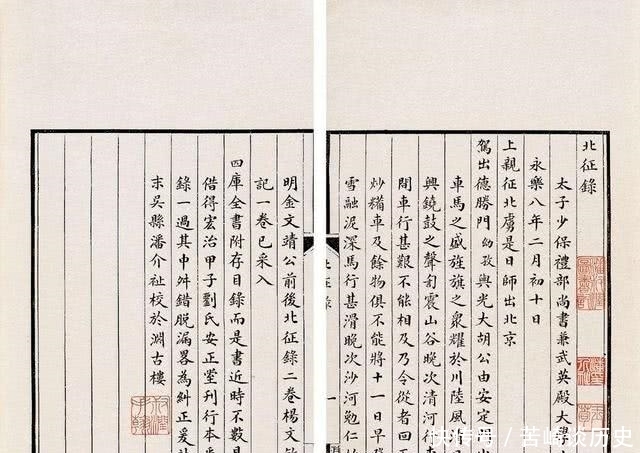 北征錄
太子少保禮部尚書兼武英殿大學
永樂八年二月初十日
上親征北虜是日師出北京
駕出德勝門幼孜與光大胡公由安定
車馬之盛旌旗之衆耀於川陸風
興鐃鼓之聲訇震山谷晚次清河
間車行甚艱不能相及乃令從者回
炒糒車及餘物俱不能將十一日早發
雪融泥深馬行甚滑晚次沙河勉仁
北征錄
一
明金文靖公前後北征錄二卷楊文敏
記一卷已采入
四庫全書附存目錄而是書近時不數見
借得宏治甲子劉氏安正堂刊行本
錄一過其中舛錯脫漏畧為糾正爰
末吳縣潘介祉校於淵古樓
快传号 / 苦崎谈历史